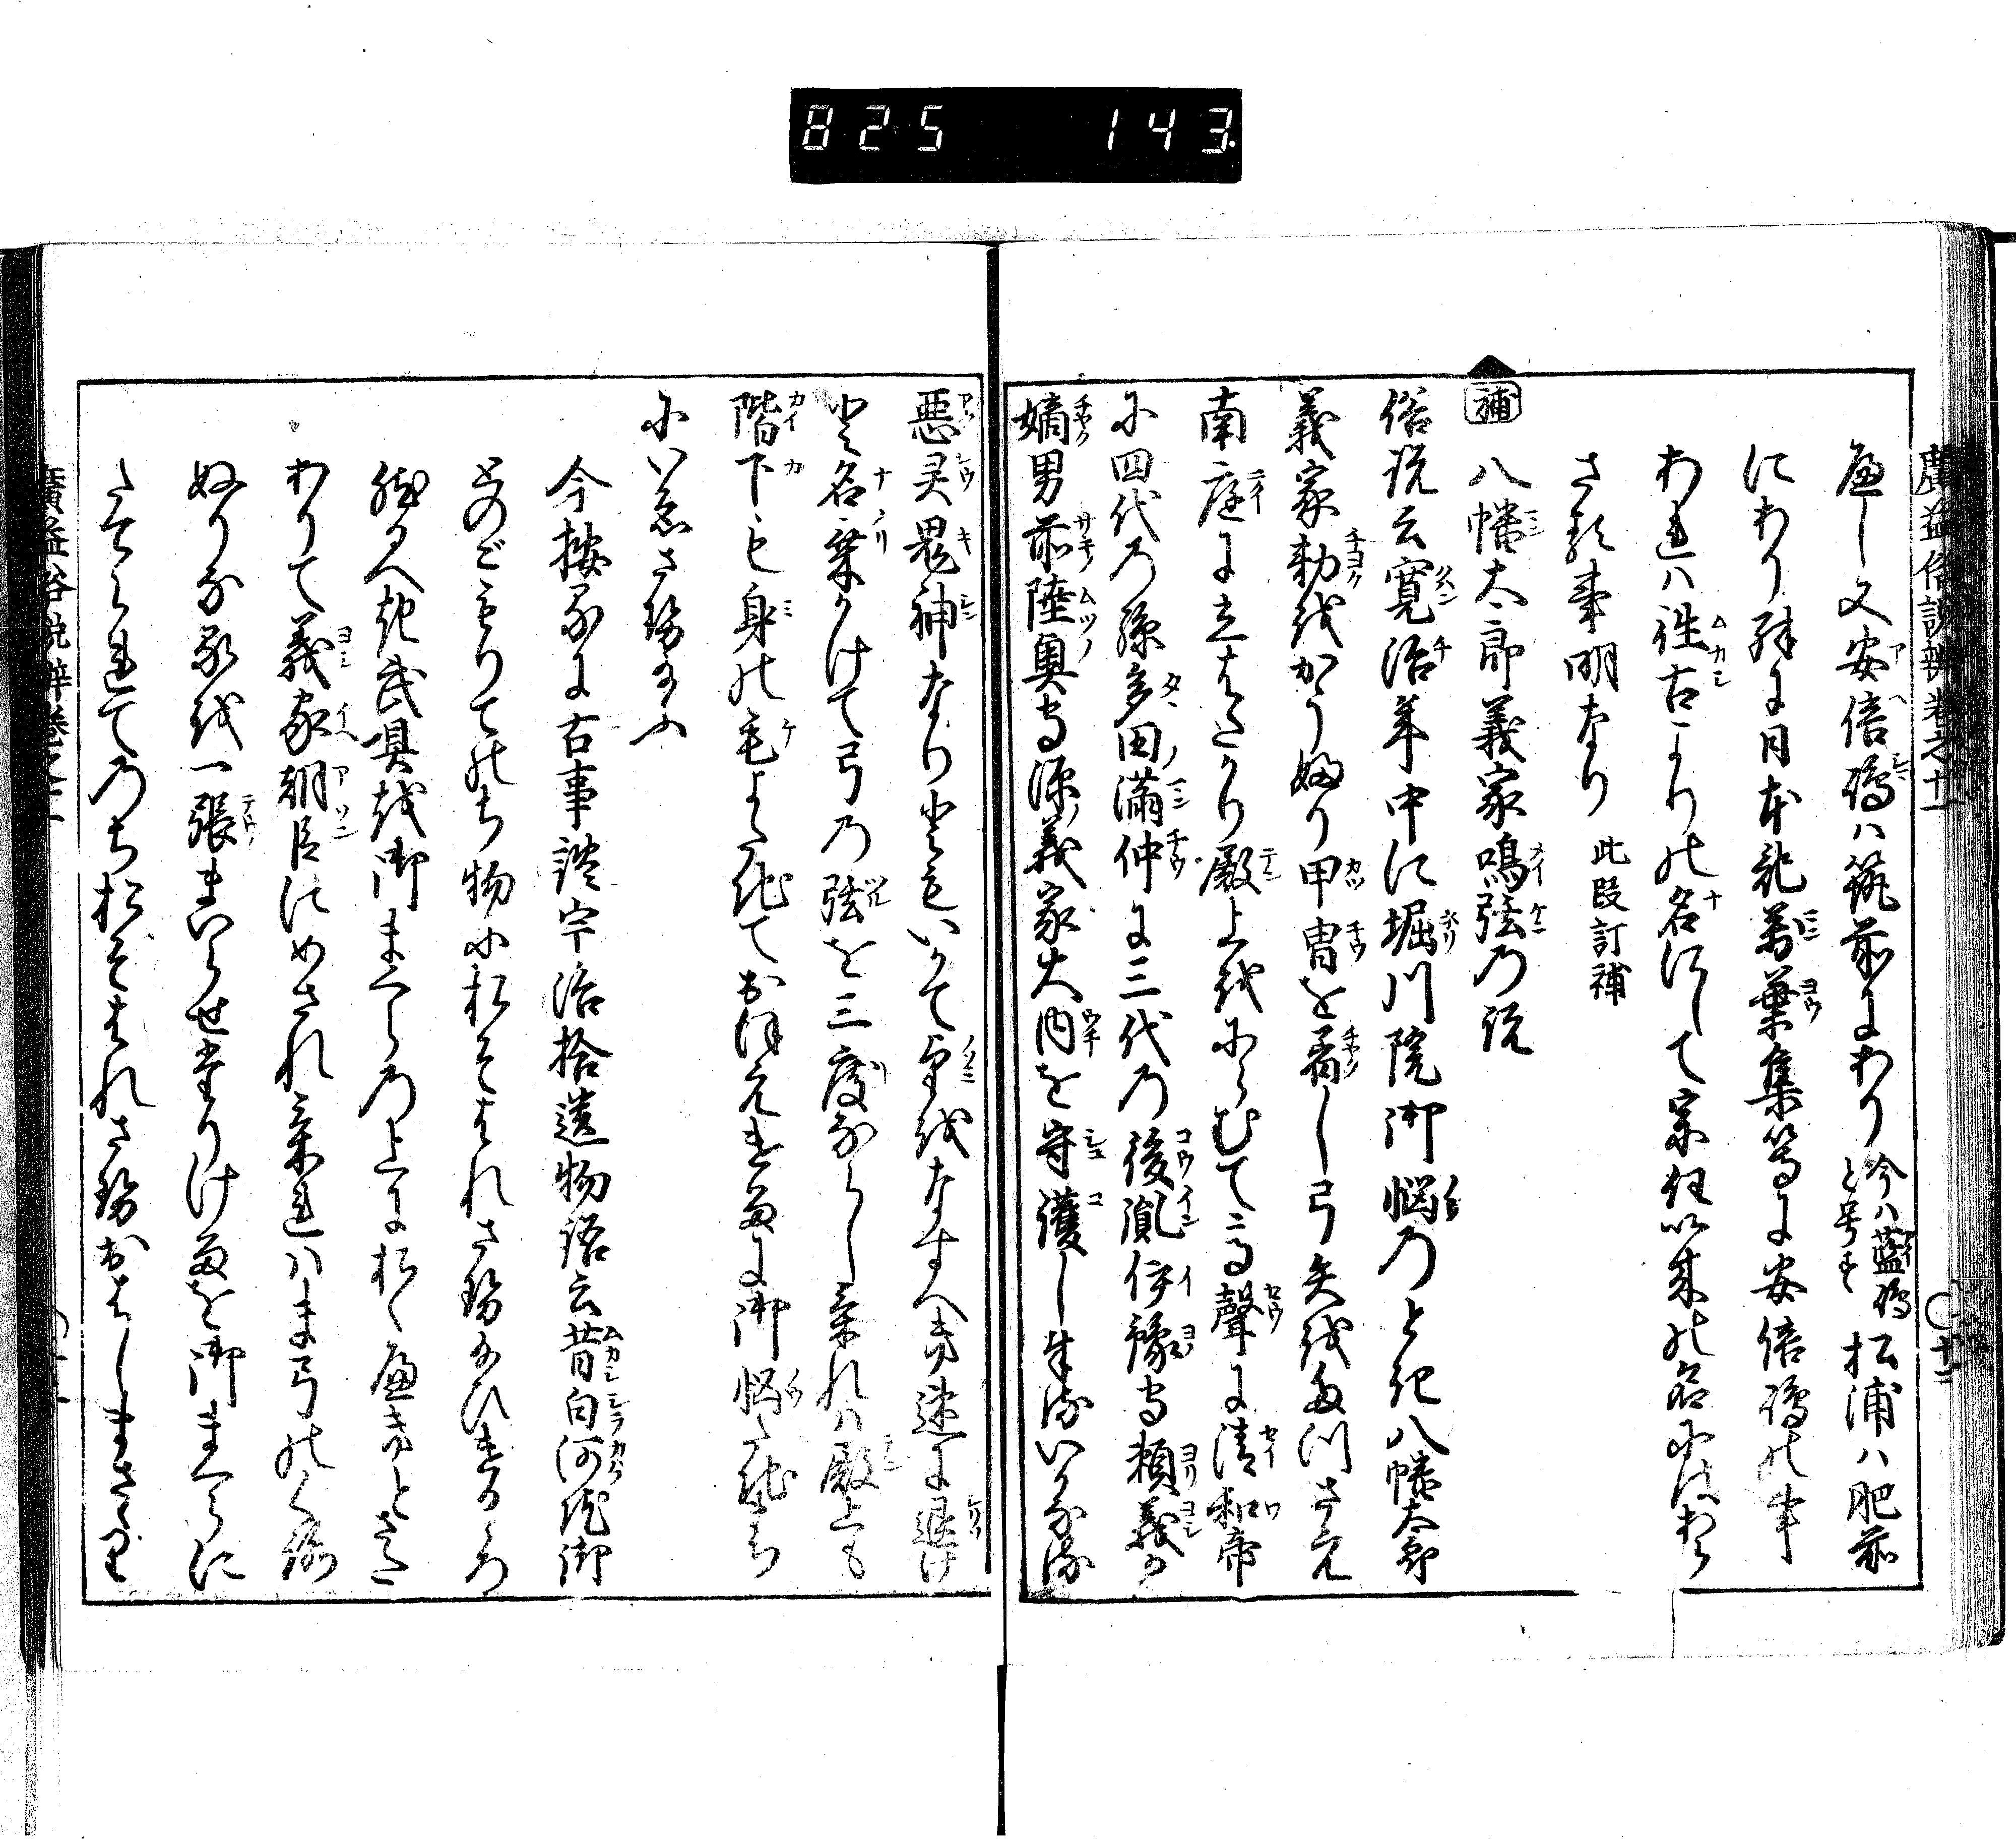 825 143
廣益俗説辨卷之十一
へし又安倍嶋ハ筑前にあり今ハ藍嶋と号す松浦ハ肥前
にあり殊に日本紀萬葉集等に安倍嶋の事
あれハ徃古よりの名にして宗任以来の名にあら
さる事明なり 此段訂補
補 八幡太郎義家鳴弦乃説
俗説云寛治年中に堀川院御悩乃とき八幡太郎
義家勅をかうふり甲冑を着し弓矢をたつさえ
南庭に立はたかり殿上をにらむて高聲に清和帝
に四代乃孫多田滿仲に三代乃後胤伊豫守頼義の
嫡男前陸奥守源義家大内を守護し奉るいかなる
悪灵鬼神なりともいかて望をなすへき速に退け
と名乗かけて弓乃弦を三度ならし
階下も身の毛よたちておほえけるに御悩たちまち
にいえさせ給ふ
今按るに古事談宇治拾遺物語云昔白河院御
とのごもりてのち物におそはれさせ給ひけるころ
然るへき武具を御まくら乃上におくへきとさた
ありて義家朝臣にめされ
ぬりなるを一張まいらせたりけるを御まくらに
たてられてのちおそはれさせおはしまさす
廣益俗説辨卷之十一